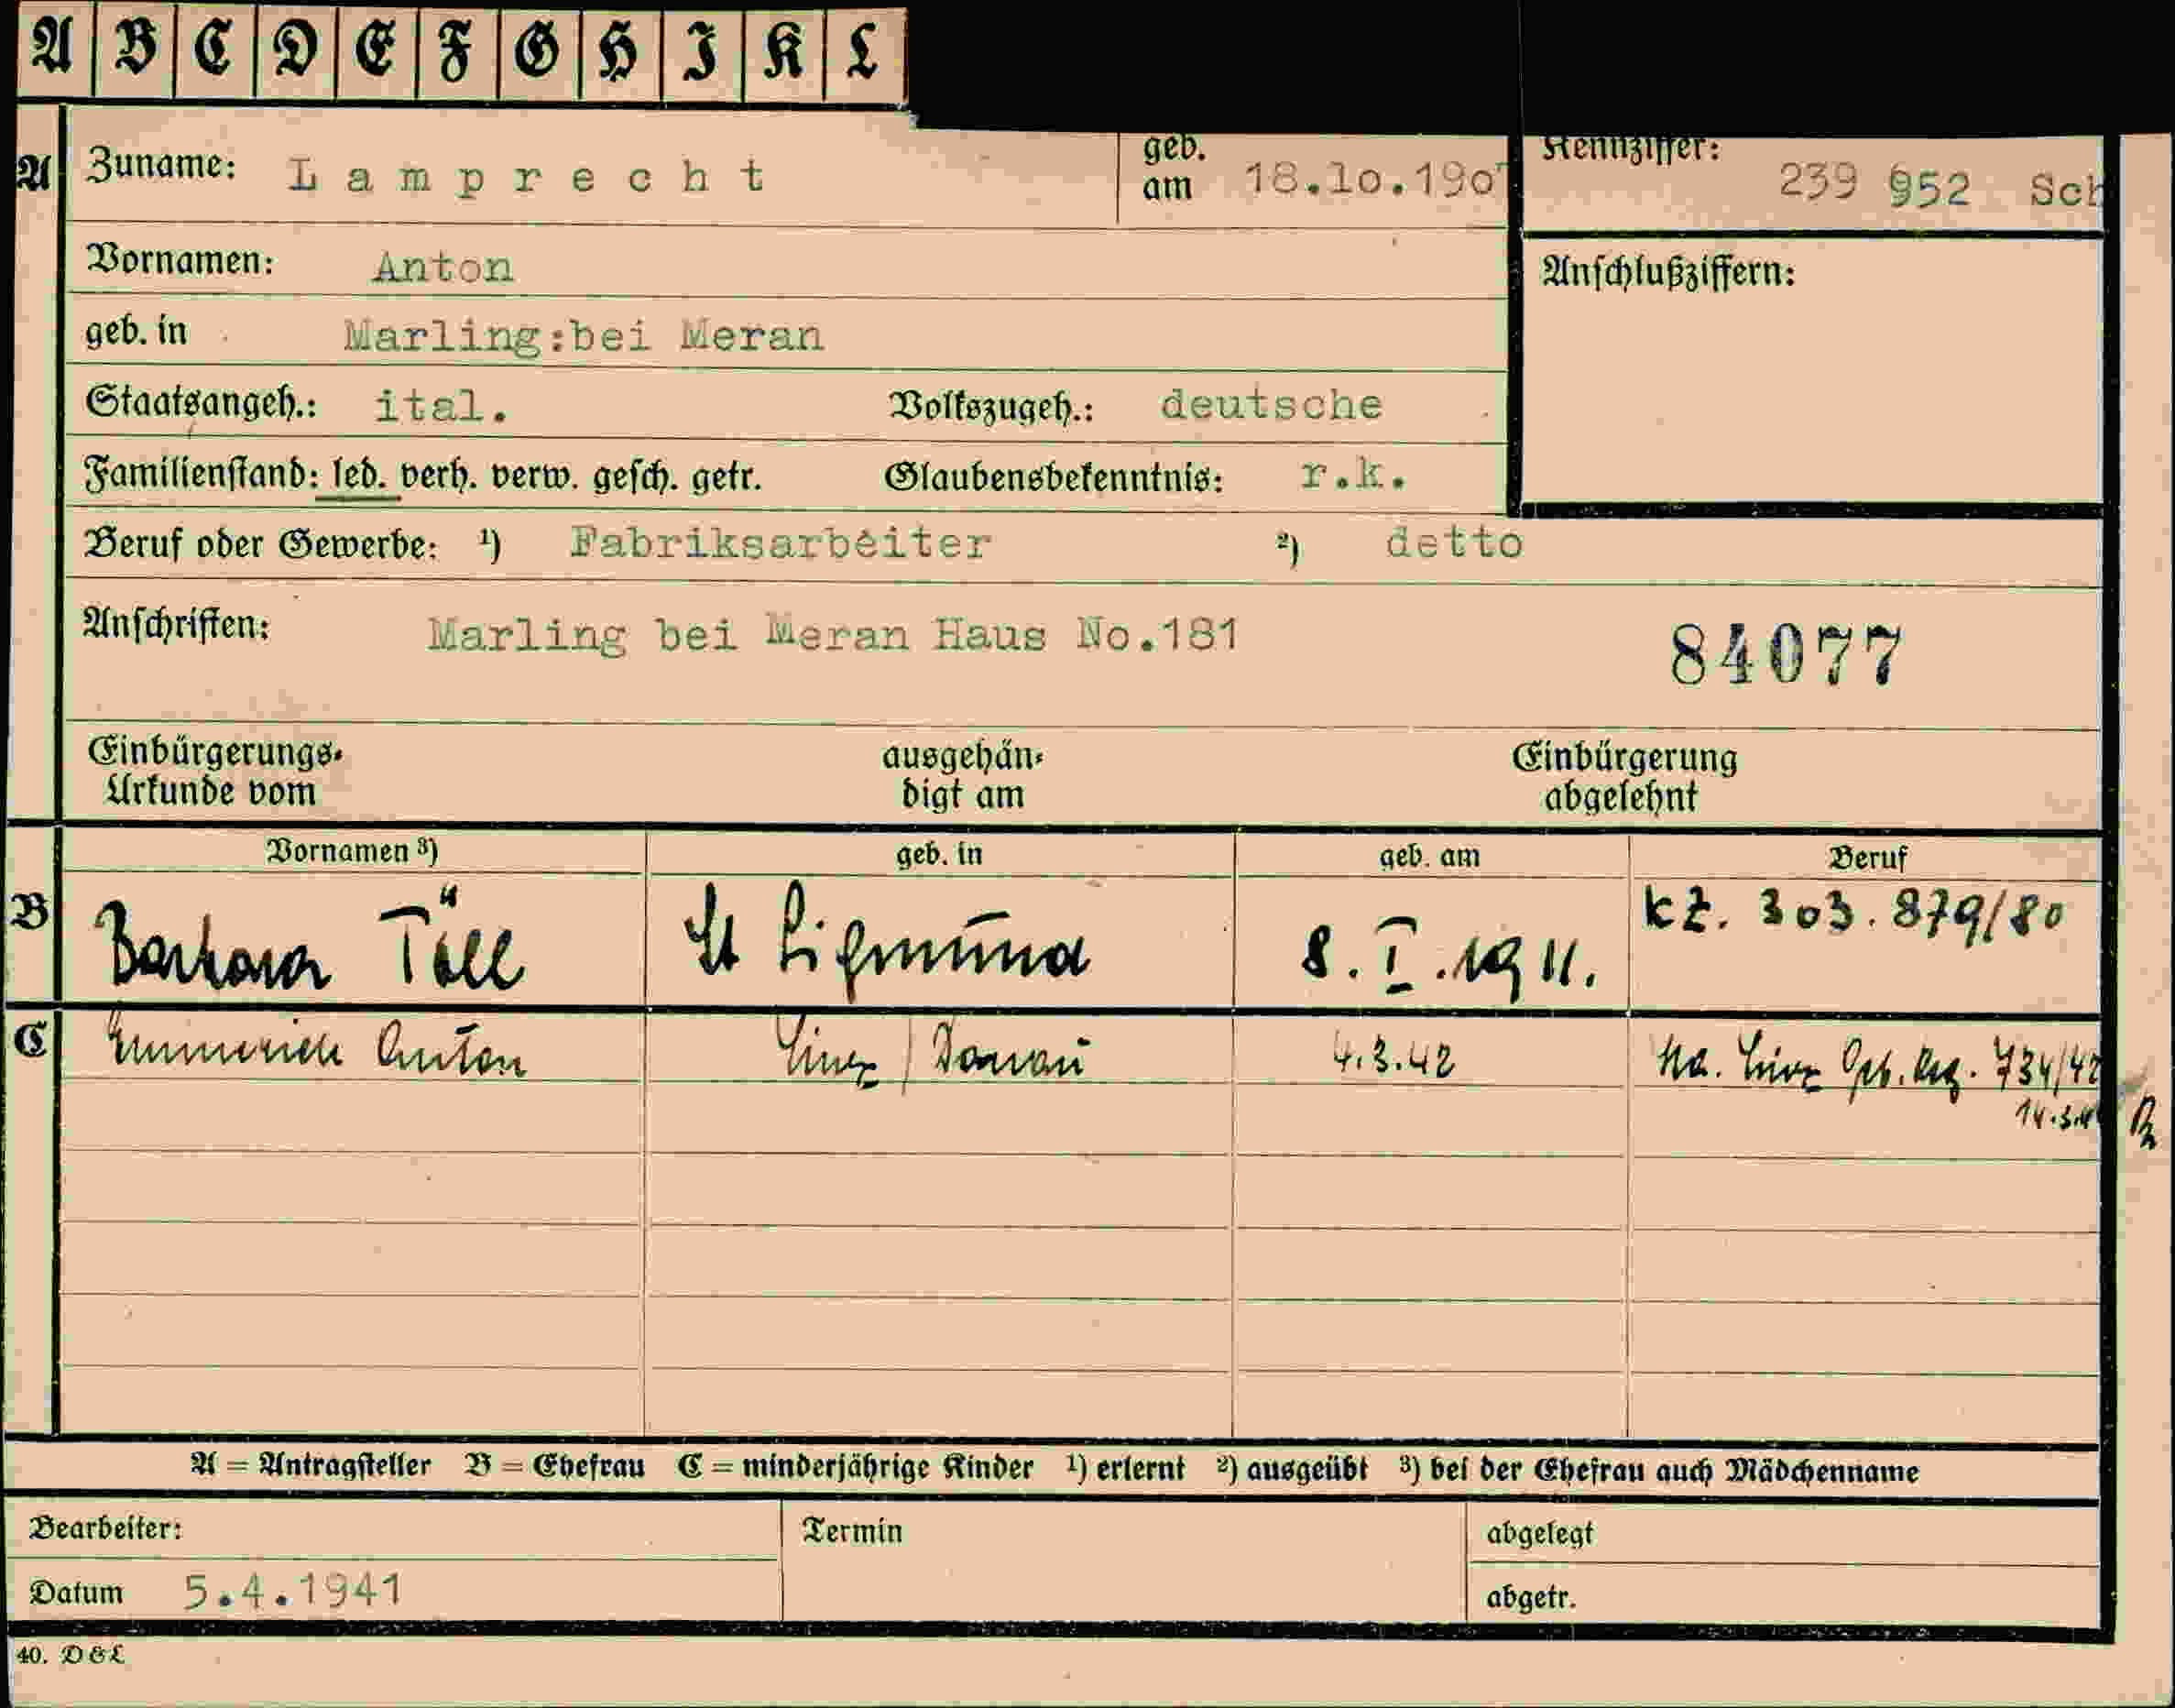 A B C D E F G H I K L
A Zuname: Lamprecht geb. am 18.10.190 Kennziffer: 239 952 Sch
Vornamen: Anton Anschlußziffern:
geb. in Marling:bei Meran
Staatsangeh.: ital. Volkszugeh.: deutsche
Familienstand: led. verh. verw. gesch. getr. Glaubensbekenntnis: r.k.
Beruf oder Gewerbe: ¹) Fabriksarbeiter ²) detto
Anschriften: Marling bei Meran Haus No.181 84077
Einbürgerungs- ausgehän- Einbürgerung
Urkunde vom digt am abgelehnt
Vornamen ³) geb. in geb. am Beruf
B Barbara Töll St Sigmund 8.I.1911. KZ. 303.879/80
C Emmerich Anton Linz / Donau 4.3.42 Sta. Linz Geb. Reg. 734/42
14.3.4
A = Antragsteller B = Ehefrau C = minderjährige Kinder ¹) erlernt ²) ausgeübt ³) bei der Ehefrau auch Mädchenname
Bearbeiter: Termin abgelegt
Datum 5.4.1941 abgetr.
40. D & L